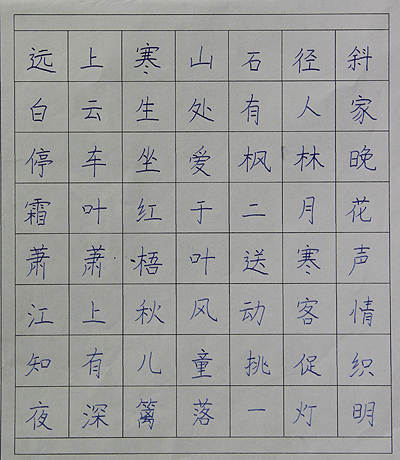 远上寒山石径斜
白云生处有人家
停车坐爱枫林晚
霜叶红于二月花
萧萧梧叶送寒声
江上秋风动客情
知有儿童挑促织
夜深篱落一灯明